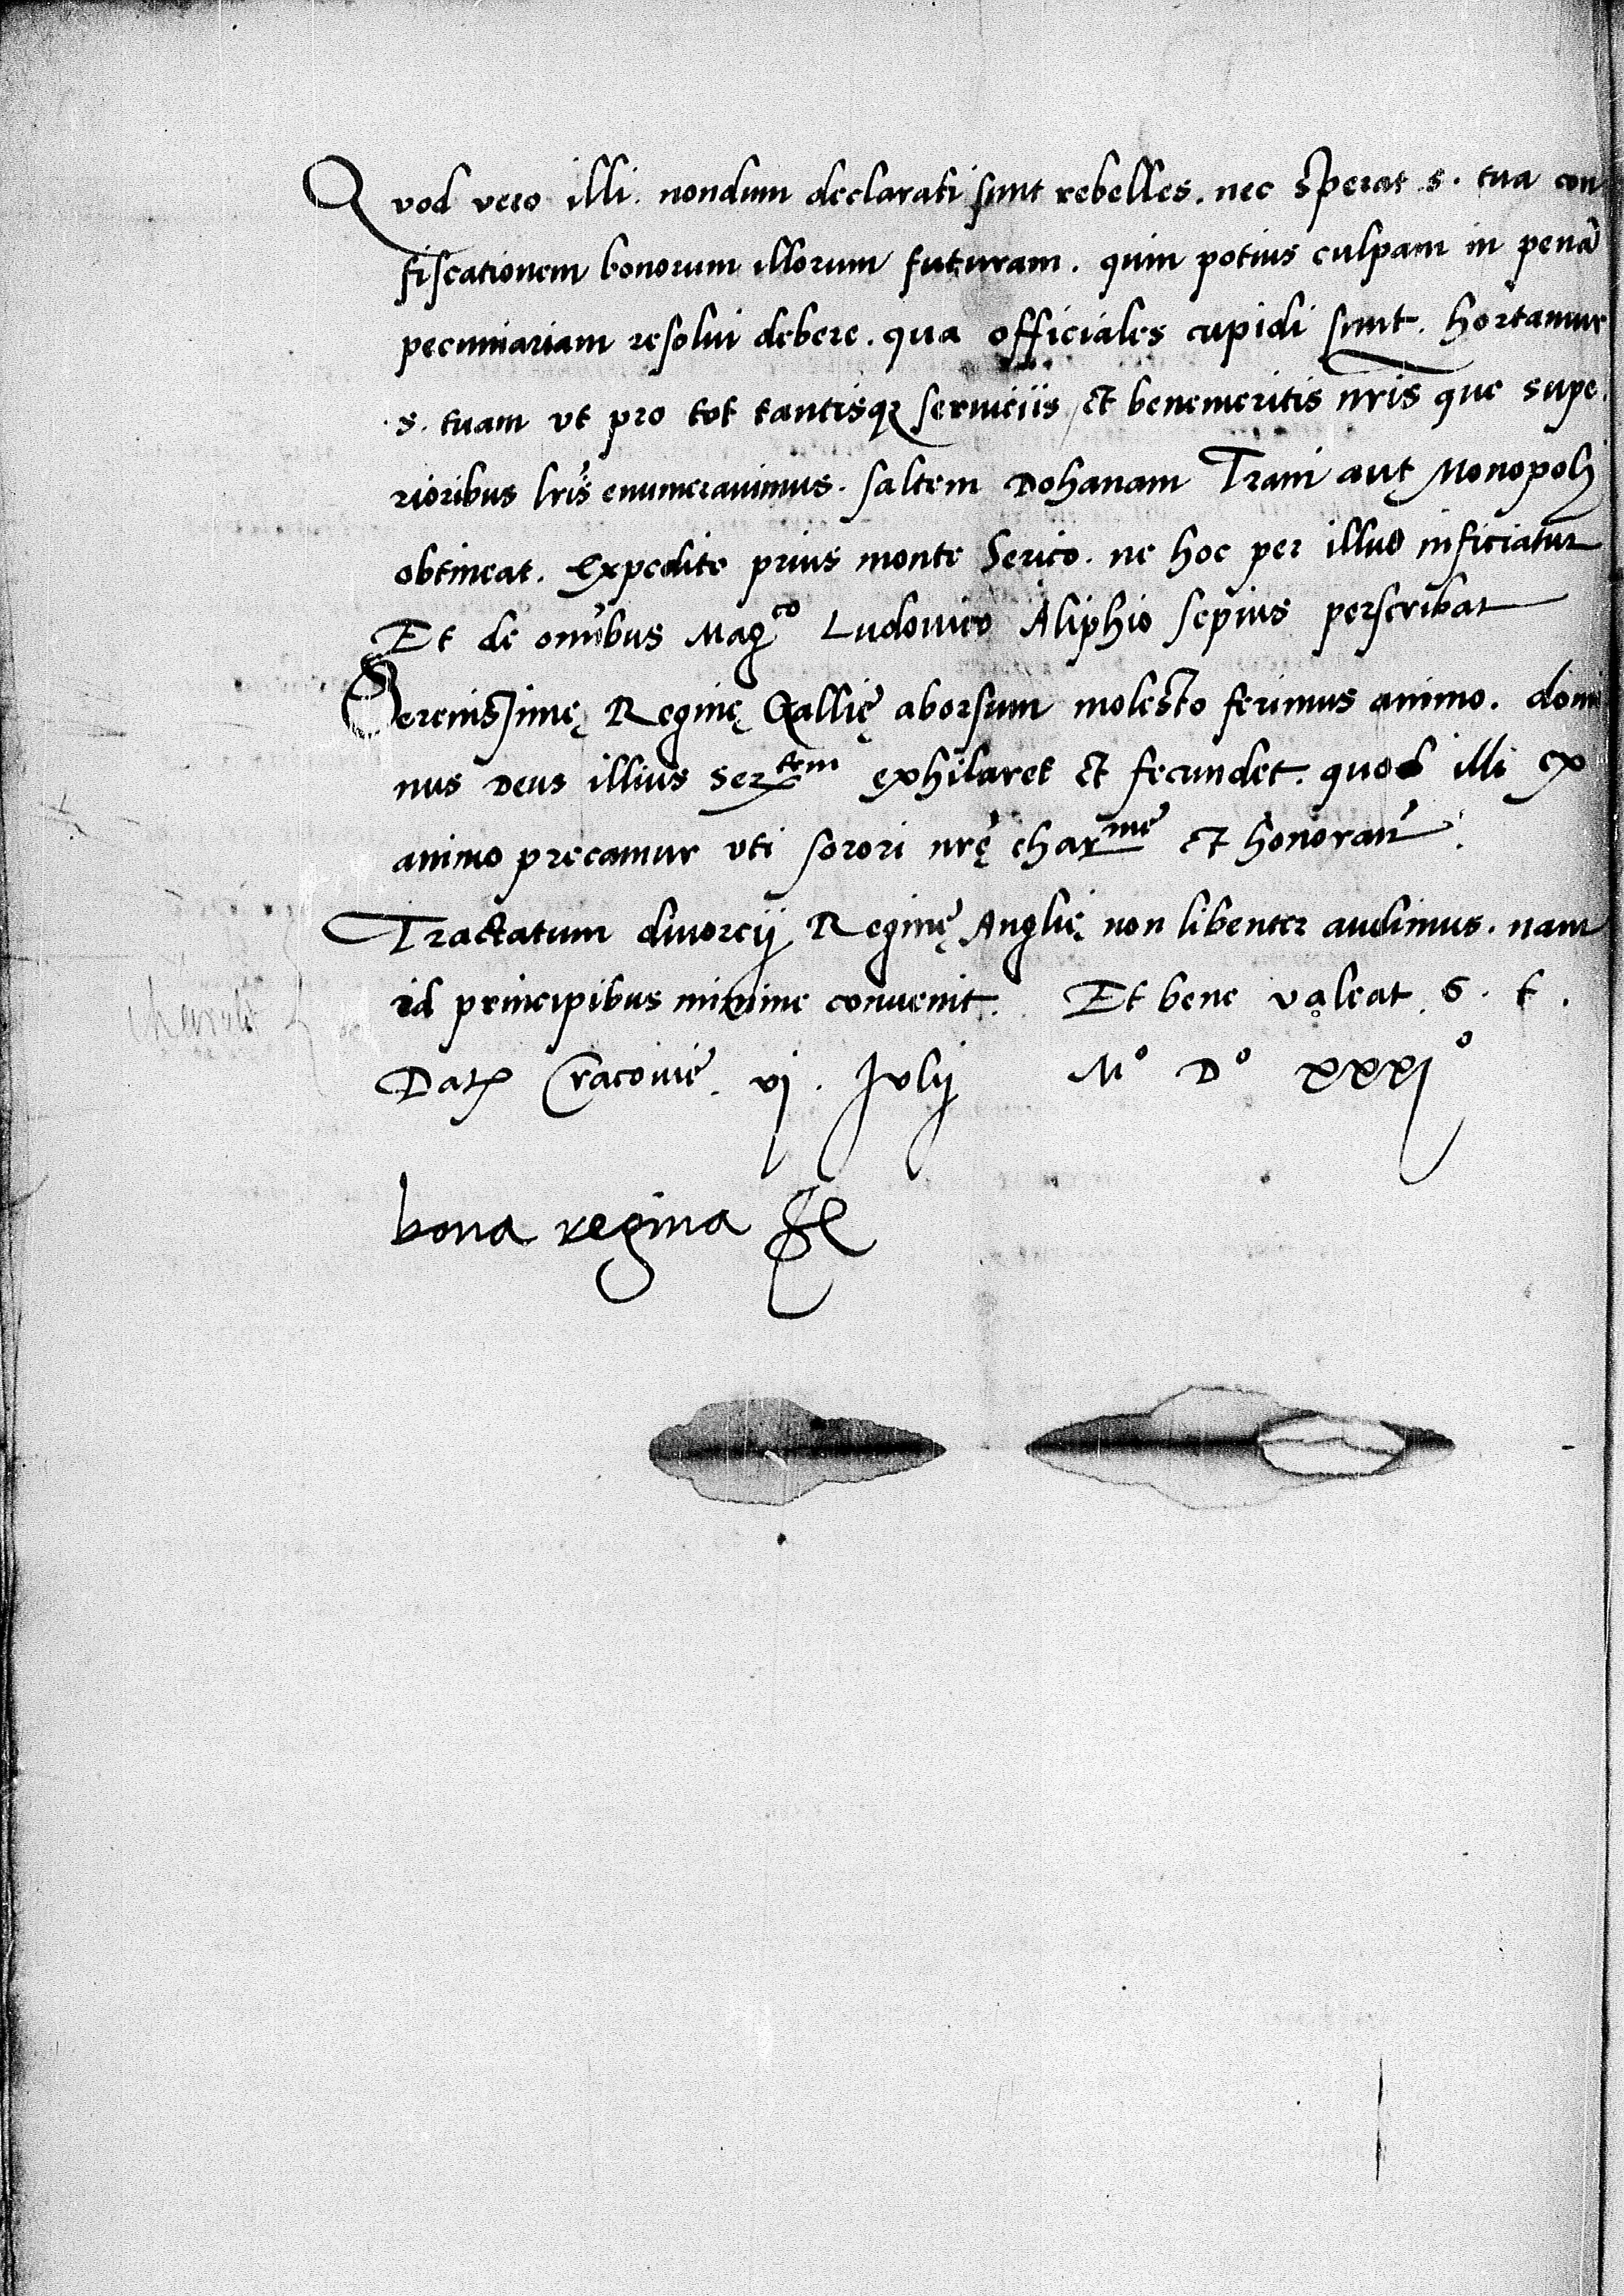 Quod vero illi. nondum declarati sunt rebelles. nec sperat .s. tua con
fiscationem bonorum illorum futuram. quin potius culpam in penã
pecuniariam resolui debere. qua officiales cupidi sunt. hortamur
.s. tuam vt pro tot tantisq; seruiciis et benemeritis nr̃is que supe
rioribus lr̃is enumerauimus. saltem Dohanam Trani aut Monopolij
obtineat. Expedito prius monte Serico. ne hoc per illud inficiatur
Et de om̃ibus Mag^co Ludouico Aliphio sepius perscribat
Serenissimę Reginę Gallię aborsum molesto ferimus animo. domi
nus Deus illius Ser^tem exhilaret et fecundet. quod illi ex
animo precamur vti sorori nr̃ę char^me et honoran̄.
Tractatum diuorcij Reginę Anglię non libenter audimus. nam
id principibus minime conuenit. Et bene valeat .S. t.
Dat. Cracouie. vj. Julij M° D° xxxj°
bona regina